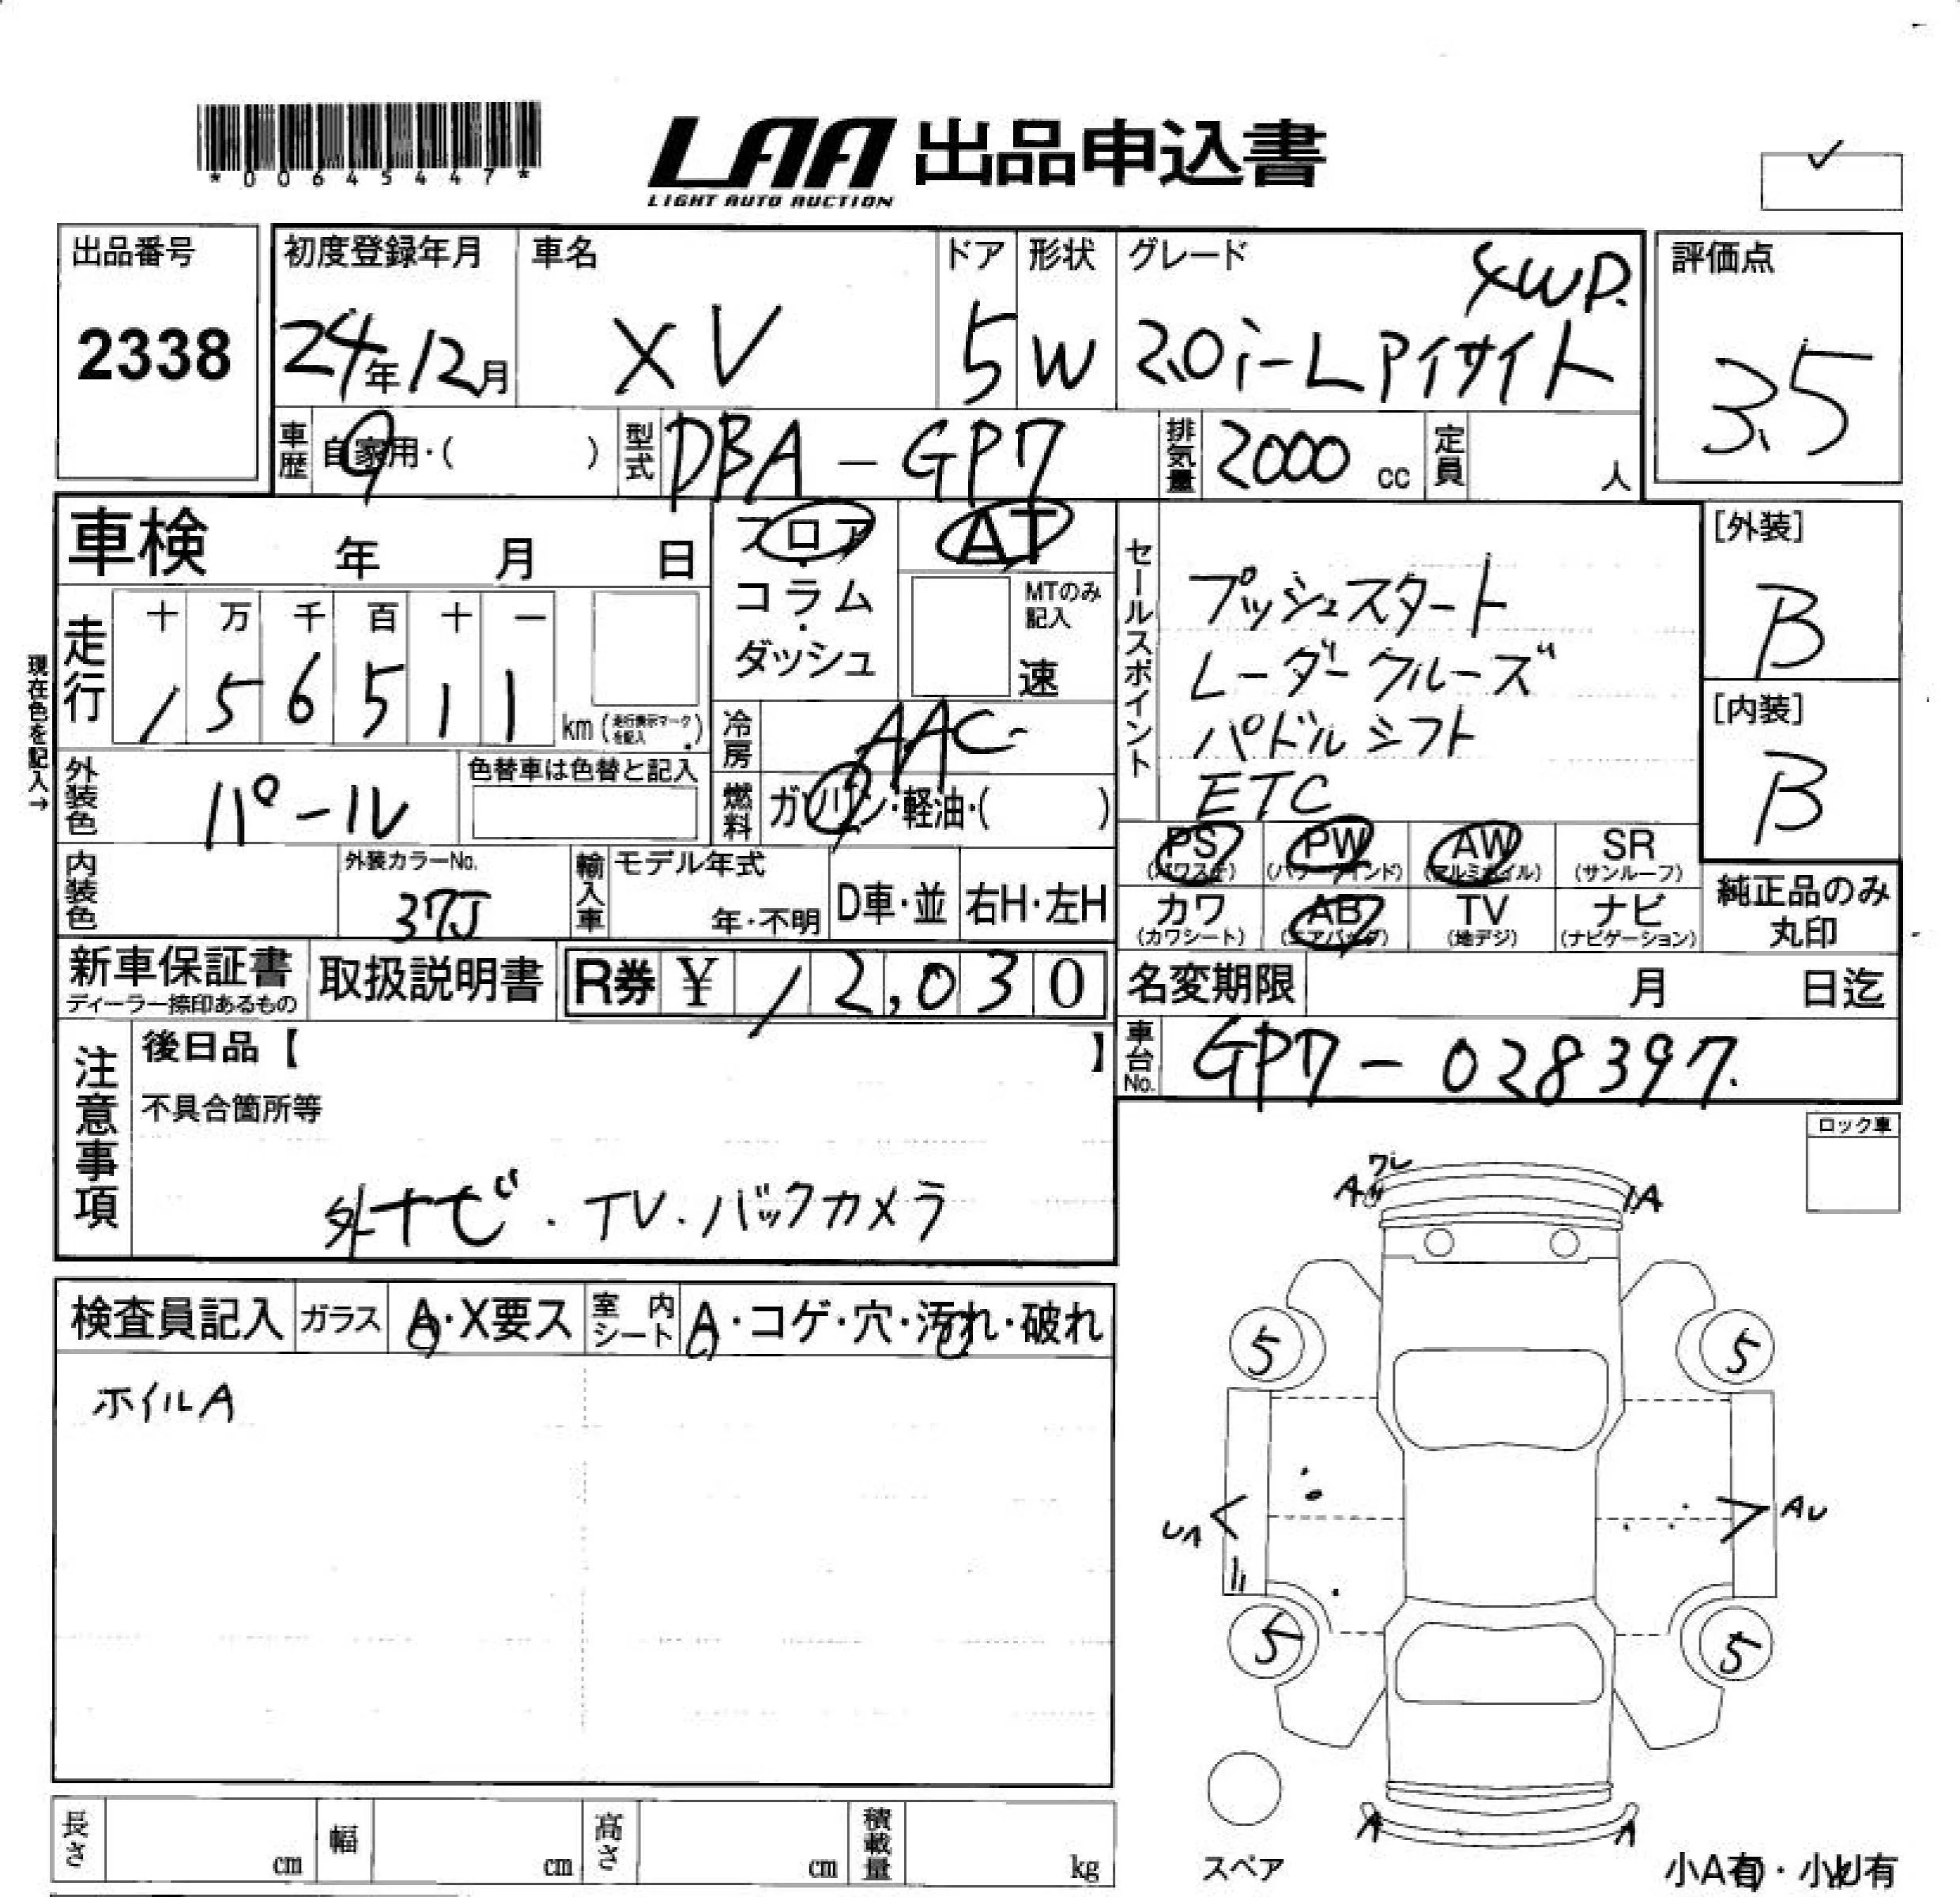 *00645447*
LAA 出品申込書
LIGHT AUTO AUCTION
出品番号
2338
初度登録年月
24年12月
車名
XV
ドア
5
形状
W
グレード
4WD.
2.0i-L アイサイト
評価点
3.5
車歴
自家用・( )
型式
DBA-GP7
排気量
2000 cc
定員
人
車検 年 月 日
フロア
・
コラム
・
ダッシュ
AT
MTのみ
記入
速
セールスポイント
プッシュスタート
レーダークルーズ
パドルシフト
ETC
[外装]
B
[内装]
B
現在色を記入→
走行
十 万 千 百 十 一
1 5 6 5 1 1
km (走行表示マークを記入)
冷房
AAC
燃料
ガソリン・軽油・( )
外装色
パール
色替車は色替と記入
内装色
外装カラーNo.
37J
輸入車
モデル年式
年・不明
D車・並
右H・左H
PS
(パワステ)
PW
(パワーウインド)
AW
(アルミホイル)
SR
(サンルーフ)
カワ
(カワシート)
AB
(エアバッグ)
TV
(地デジ)
ナビ
(ナビゲーション)
純正品のみ
丸印
新車保証書
ディーラー捺印あるもの
取扱説明書
R券 ¥ 12,030
名変期限 月 日迄
車台No.
GP7-028397.
注意事項
後日品【 】
不具合箇所等
外ナビ.TV.バックカメラ
ロック車
検査員記入
ガラス
A・X要ス
室内
シート
A・コゲ・穴・汚れ・破れ
ホイルA
ワレ
A
A
5
5
UA
AU
5
5
A
A
スペア
小A有・小U有
長さ
cm
幅
cm
高さ
cm
積載量
kg